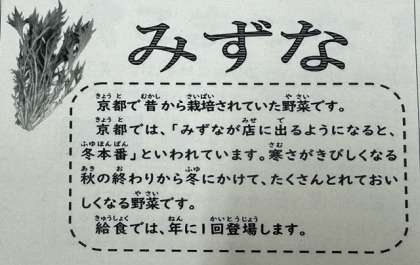 みずな
京都で昔から栽培されていた野菜です。
京都では、「みずなが店に出るようになると、
冬本番」といわれています。寒さがきびしくなる
秋の終わりから冬にかけて、たくさんとれておい
しくなる野菜です。
給食では、年に1回登場します。